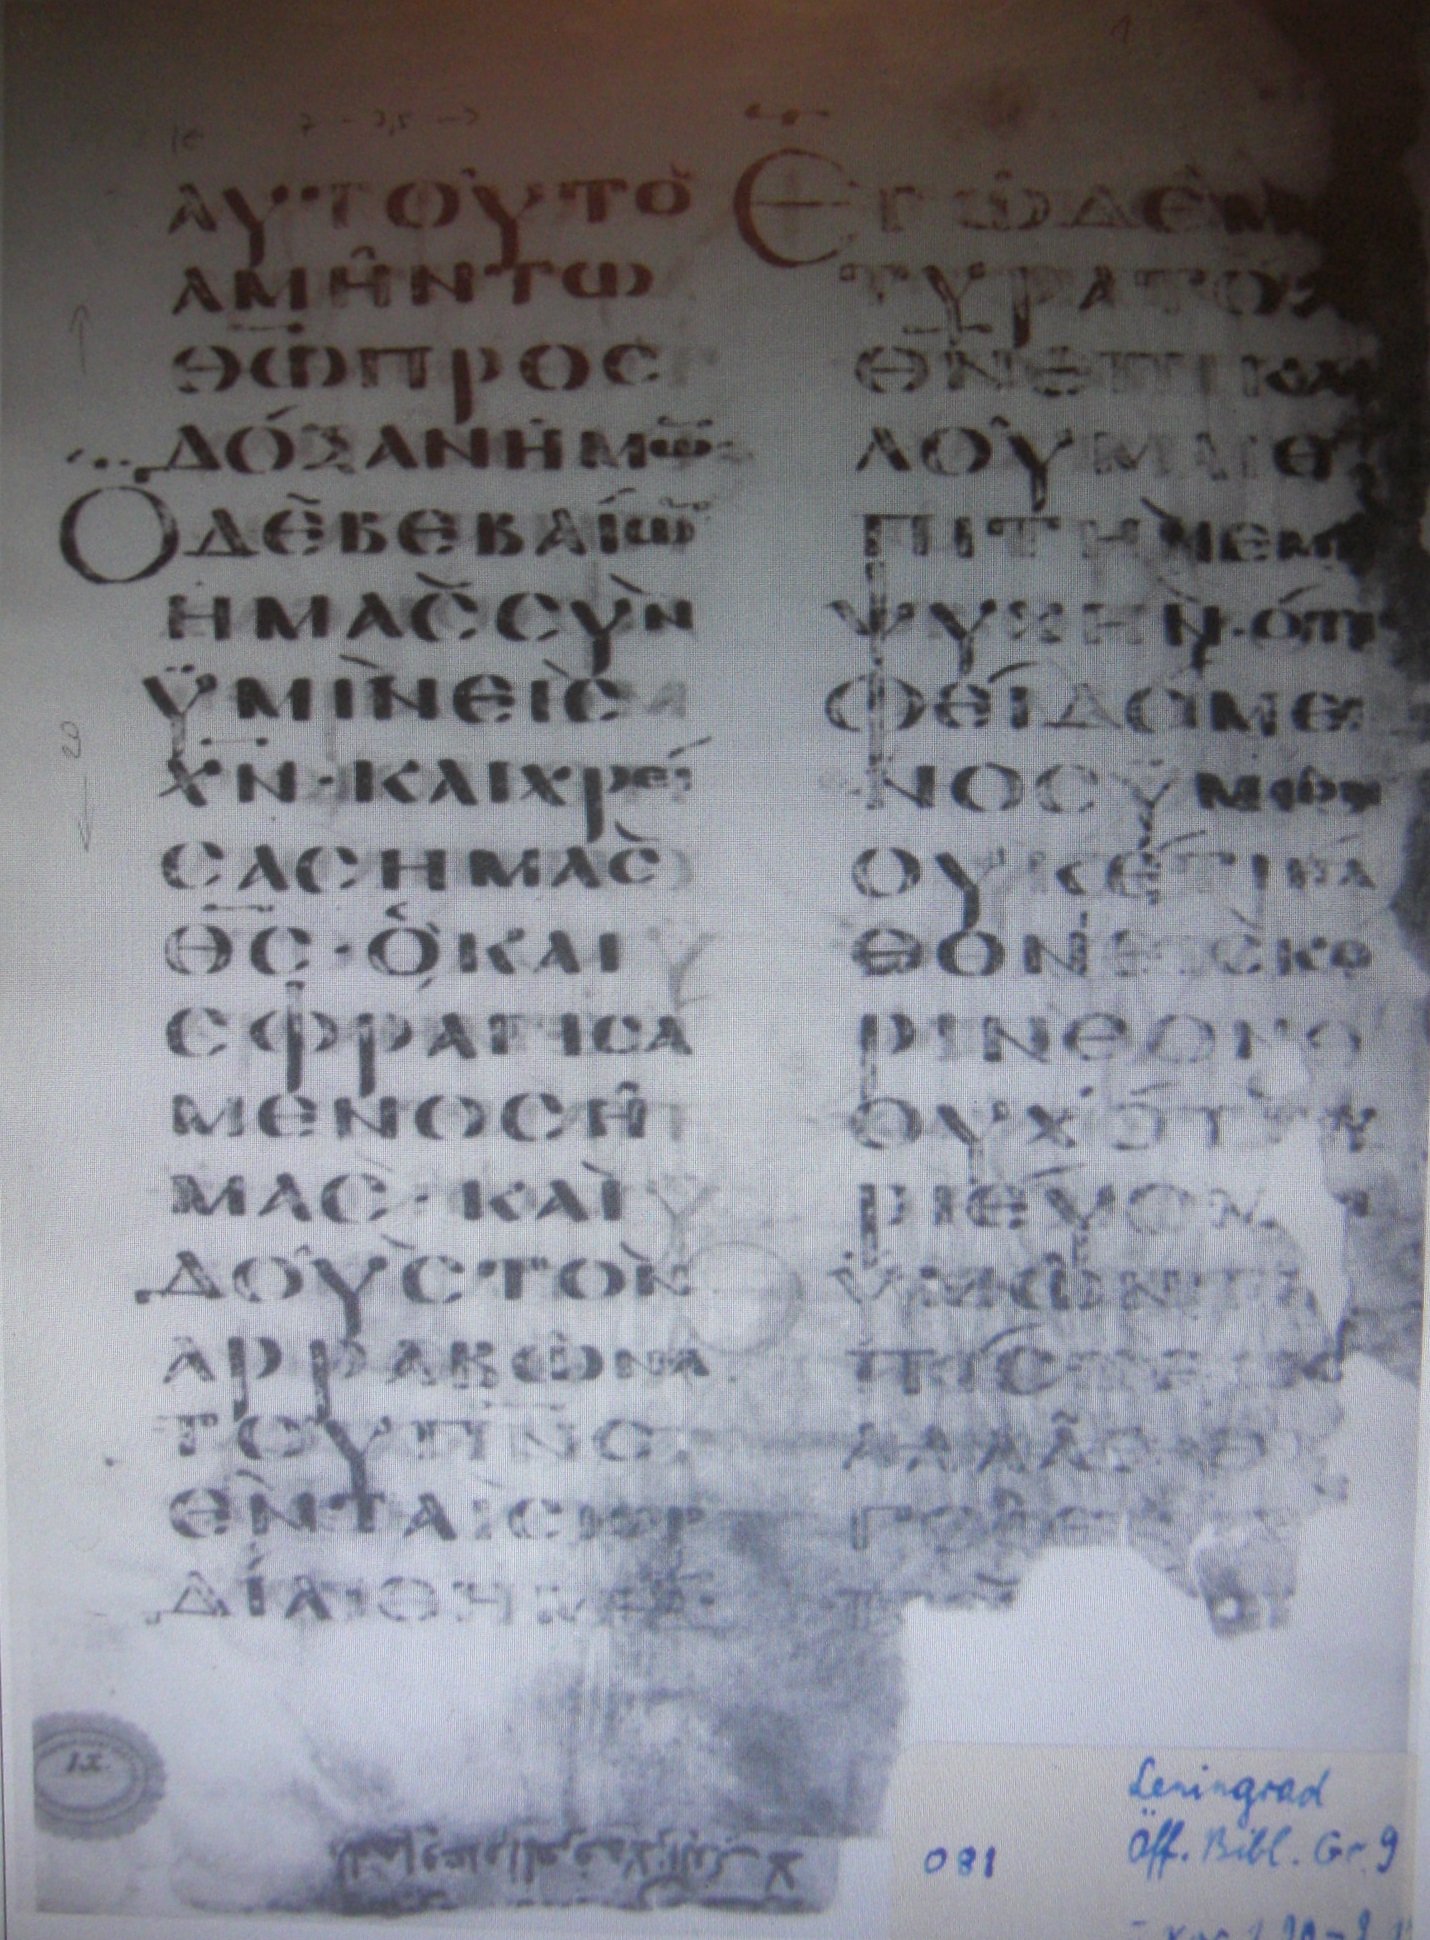 ΑΥΤΟΥΤΟ
ΑΜΗΝΤΩ
Θ̅Ω̅ΠΡΟϹ
ΔΟΞΑΝΗΜΩ̅
ΟΔΕΒΕΒΑΙΩ̅
ΗΜΑϹϹΥΝ
ΫΜΙΝΕΙϹ
Χ̅Ν̅·ΚΑΙΧΡΕΙ
ϹΑϹΗΜΑϹ
Θ̅Ϲ̅·ΟΚΑΙ
ϹΦΡΑΓΙϹΑ
ΜΕΝΟϹΗ
ΜΑϹ·ΚΑΙ
ΔΟΥϹΤΟΝ
ΑΡΡΑΒΩΝΑ
ΤΟΥΠ̅Ν̅Ϲ̅
ΕΝΤΑΙϹΚΑΡ
ΕΓΩΔΕΜ
ΤΥΡΑΤΟΝ
Θ̅Ν̅ΕΠΙΚΑ
ΛΟΥΜΑΙΕ
ΠΙΤΗΝΕΜΗ
ΨΥΧΗΝ·ΟΤΙ
ΦΕΙΔΟΜΕ
ΝΟϹΫΜΩΝ
ΟΥΚΕΤΙΗΛ
ΘΟΝΕΙϹΚΟ
ΡΙΝΘΟΝ
ΟΥΧΟΤΙΚΥ
ΡΙΕΥΟΜΕ
ΫΜΩΝΤΗ
ΠΙϹΤΕΩϹ
ΑΛΛΑ
Leningrad
Öff. Bibl. Gr. 9
081